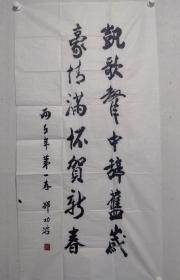 凯歌声中辞旧岁
豪情满怀贺新春
两千年第一春